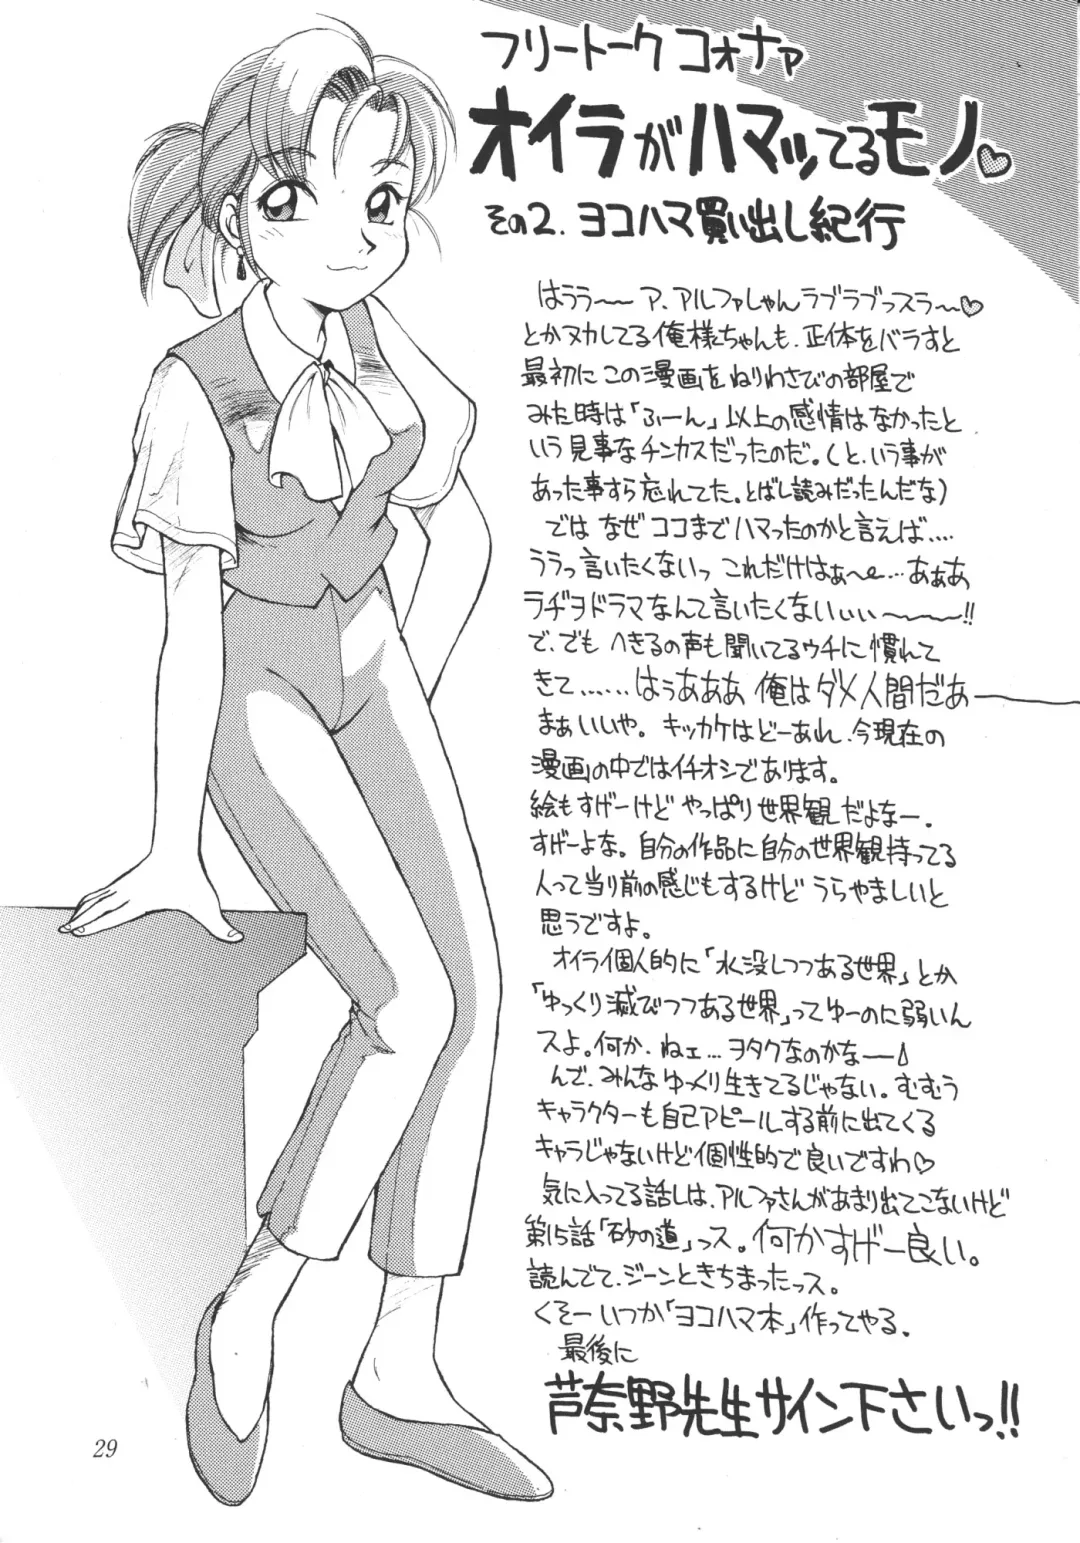 フリートーク コォナァ
オイラがハマッてるモノ♡
その2. ヨコハマ買い出し紀行
はうう〜〜 ア、アルファしゃんラブラブっスラ〜♡
とかヌカしてる俺様ちゃんも、正体をバラすと
最初にこの漫画をねりわさびの部屋で
みた時は「ふーん」以上の感情はなかったと
いう見事なチンカスだったのだ。(と、いう事が
あった事すら忘れてた。とばし読みだったんだな)
では なぜ ココまでハマったのかと言えば....
ううっ言いたくないっ これだけはぁ〜...あぁぁ
ラヂヲドラマなんて言いたくないぃぃ〜〜〜!!
で、でも へきるの声も聞いてるウチに慣れて
きて......はぅあああ 俺はダメ人間だあ――
まぁいいや。キッカケはどーあれ、今現在の
漫画の中ではイチオシであります。
絵もすげーけど やっぱり世界観だよなー.
すげーよな。自分の作品に自分の世界観持ってる
人って当り前の感じもするけど うらやましいと
思うですよ。
オイラ個人的に「水没しつつある世界」とか
「ゆっくり滅びつつある世界」ってゆーのに弱いん
スよ。何か、ねェ...ヲタクなのかなー
んで、みんなゆっくり生きてるじゃない。むむう
キャラクターも自己アピールする前に出てくる
キャラじゃないけど個性的で良いですわ♡
気に入ってる話しは、アルファさんがあまり出てこないけど
第15話「砂の道」っス。何かすげー良い。
読んでて、ジーンときちまったっス。
くそー いつか「ヨコハマ本」作ってやる.
最後に
芦奈野先生サイン下さいっ!!
29